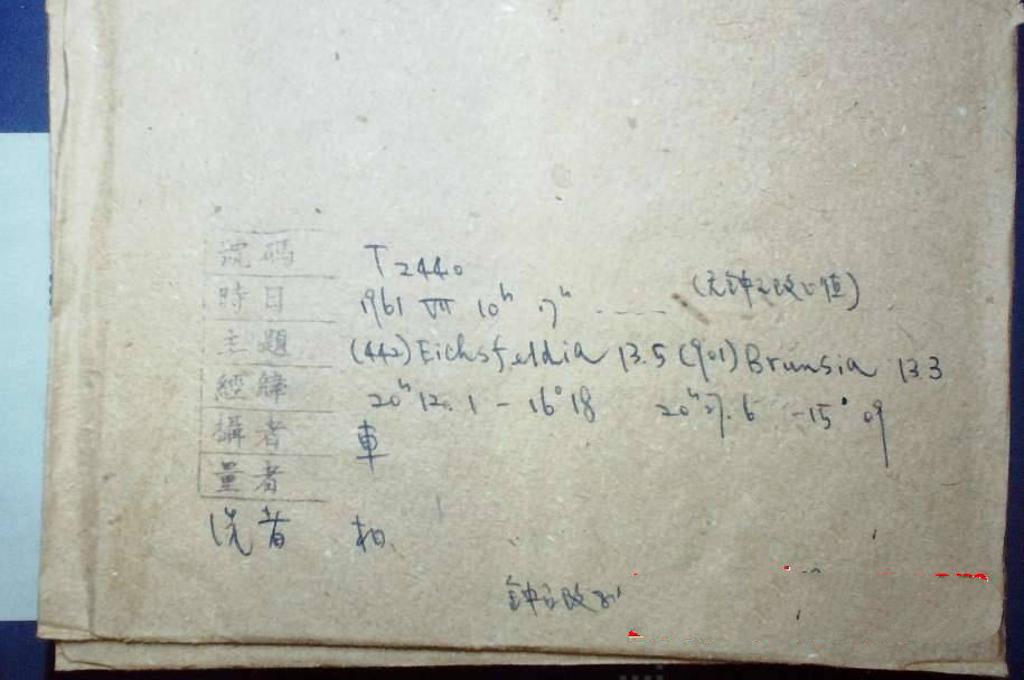 號碼 T2440
時日 1961 VII 10ʰ 7ʰ ...... (无鐘改正值)
主題 (442) Eichsfeldia 13.5 (901) Brunsia 13.3
經緯 20ʰ12.1 - 16°18 20ʰ27.6 -15°09
攝者 車
量者
洗者 柏